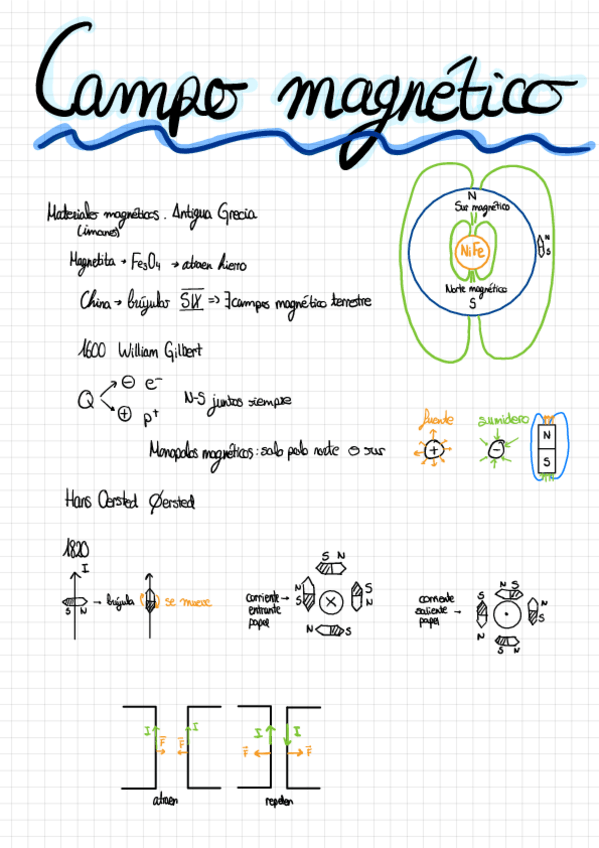 Campo magnético
Materiales magnéticos. Antigua Grecia
(imanes)
Magnetita → Fe₃O₄ → atraen hierro
China → brújulas SIX => ∃ campos magnético terrestre
N
Sur magnético
NiFe
Norte magnético
S
N
S
1600 William Gilbert
Q
⊖ e⁻
⊕ p⁺
N-S juntos siempre
Monopolos magnéticos: solo polo norte o sur
fuente
+
sumidero
-
N
S
Hans Oersted Øersted
1820
I
S N
→ brújula
se mueve
corriente →
entrante
papel
S N
N
S
S
N
N S
corriente
saliente →
papel
N S
S
N
N
S
S N
I
I
F
F
atraen
I
I
F
F
repelen